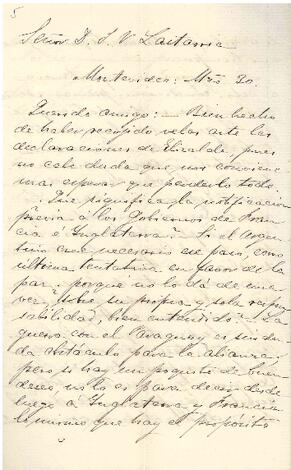 5
Señor D. J. V. Lastarria
Montevideo: Mzo 30.
Querido amigo: — Bien hecho
de haber recojido velas ante las
declaraciones de Elizalde, pues
no cabe duda que nos conviene
mas esperar que perderlo todo.
Que significa la notificacion
prévia á los Gobiernos de Fran-
cia é Inglaterra? Si el Arjen-
tino cree necesario ese paso, como
última tentativa en favor de la
paz, porque no lo dá de una
vez, sobre su propia y sola respon-
sabilidad, bien entendido? La
guerra con el Paraguay es sin du-
da obstáculo para la alianza,
pero si hay un poquito de buen
deseo no lo es para decir desde
luego á Inglaterra y Francia
lo mismo que hay el propósito